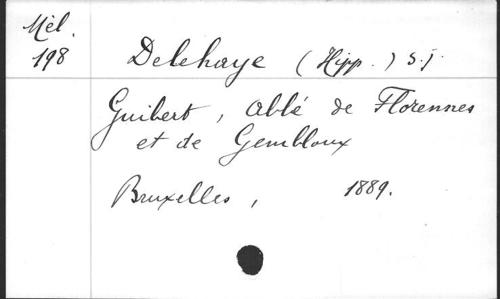 Mél.
198
Delehaye (Hipp.) S.J.
Guibert, abbé de Florennes
et de Gembloux
Bruxelles, 1889.